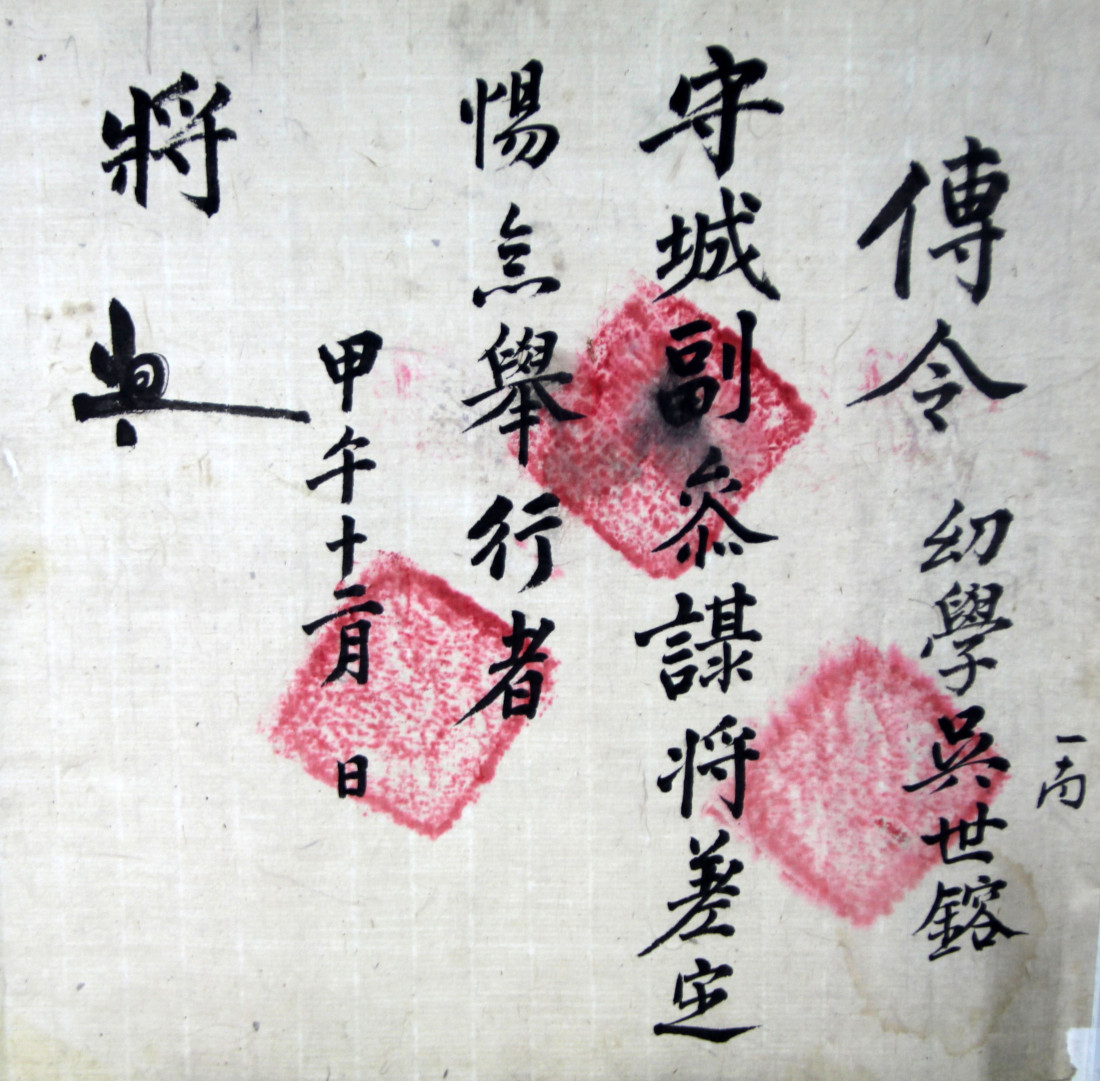 傳令 幼學吳世鎔
守城副叅謀將差定
惕念擧行者
甲午十二月 日
將